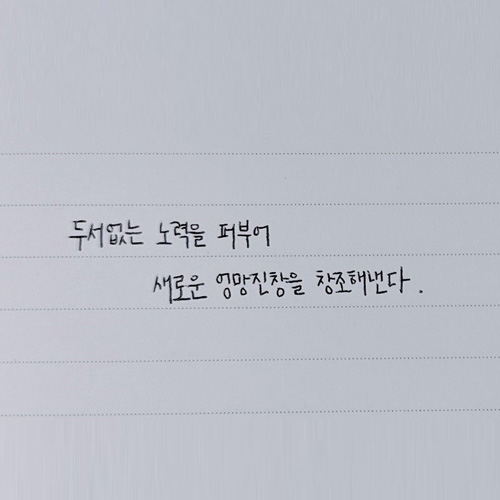 두서없는 노력을 퍼부어
새로운 엉망진창을 창조해낸다.